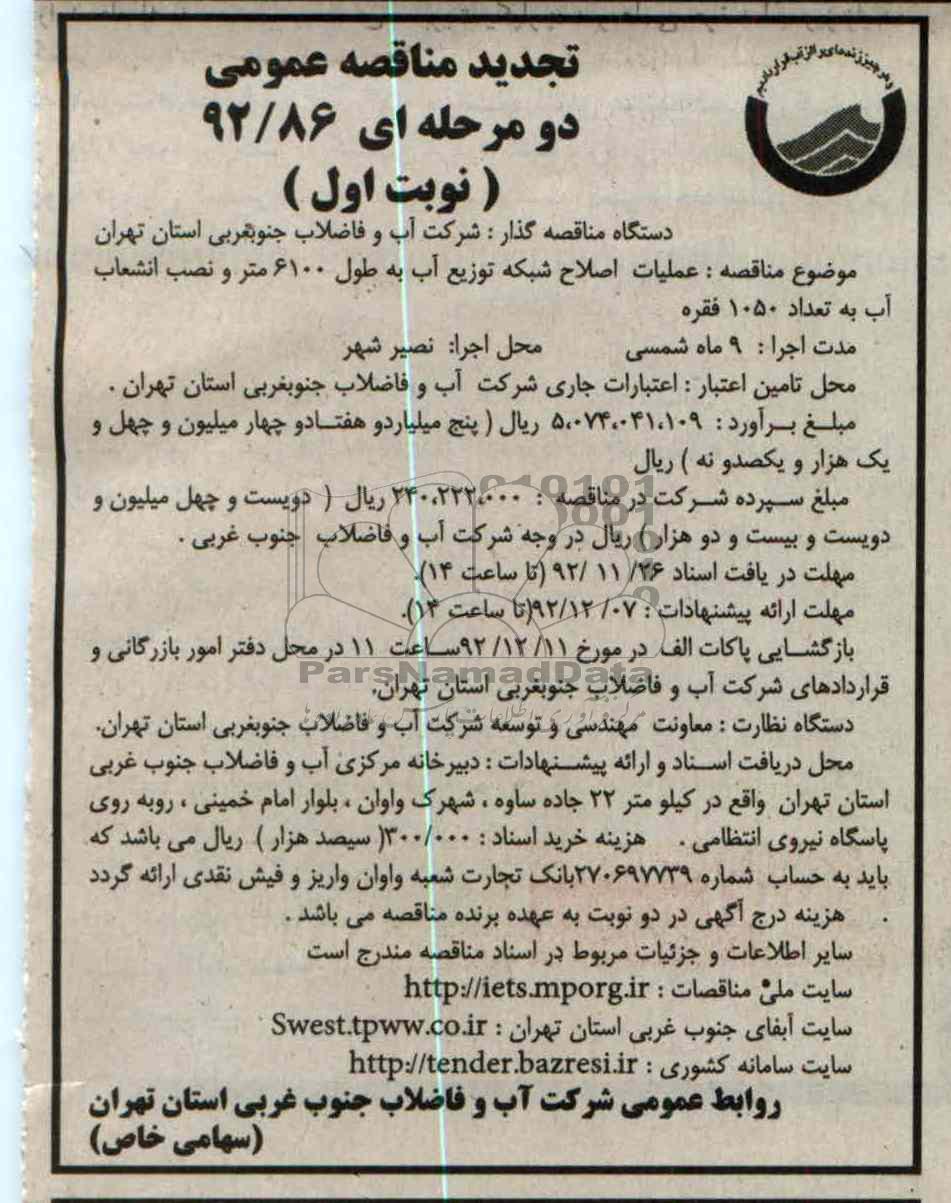 و هر چیز زنده‌ای را از آب قرار دادیم
تجدید مناقصه عمومی
دو مرحله ای ۹۲/۸۶
( نوبت اول )
دستگاه مناقصه گذار : شرکت آب و فاضلاب جنوبغربی استان تهران
موضوع مناقصه : عملیات اصلاح شبکه توزیع آب به طول ۶۱۰۰ متر و نصب انشعاب
آب به تعداد ۱۰۵۰ فقره
مدت اجرا : ۹ ماه شمسی محل اجرا: نصیر شهر
محل تامین اعتبار : اعتبارات جاری شرکت آب و فاضلاب جنوبغربی استان تهران .
مبلغ برآورد : ۵،۰۷۴،۰۴۱،۱۰۹ ریال ( پنج میلیاردو هفتادو چهار میلیون و چهل و
یک هزار و یکصدو نه ) ریال
مبلغ سپرده شرکت در مناقصه : ۲۴۰،۲۲۲،۰۰۰ ریال ( دویست و چهل میلیون و
دویست و بیست و دو هزار ) ریال در وجه شرکت آب و فاضلاب جنوب غربی .
مهلت در یافت اسناد ۲۶/ ۱۱ /۹۲ (تا ساعت ۱۴).
مهلت ارائه پیشنهادات : ۰۷ /۹۲/۱۲(تا ساعت ۱۴).
بازگشایی پاکات الف در مورخ ۱۱/ ۱۲/ ۹۲ساعت ۱۱ در محل دفتر امور بازرگانی و
قراردادهای شرکت آب و فاضلاب جنوبغربی استان تهران.
ParsNamadData
دستگاه نظارت : معاونت مهندسی و توسعه شرکت آب و فاضلاب جنوبغربی استان تهران.
محل دریافت اسناد و ارائه پیشنهادات : دبیرخانه مرکزی آب و فاضلاب جنوب غربی
استان تهران واقع در کیلو متر ۲۲ جاده ساوه ، شهرک واوان ، بلوار امام خمینی ، روبه روی
پاسگاه نیروی انتظامی . هزینه خرید اسناد : ۳۰۰/۰۰۰( سیصد هزار ) ریال می باشد که
باید به حساب شماره ۲۷۰۶۹۷۷۳۹بانک تجارت شعبه واوان واریز و فیش نقدی ارائه گردد
. هزینه درج آگهی در دو نوبت به عهده برنده مناقصه می باشد .
سایر اطلاعات و جزئیات مربوط در اسناد مناقصه مندرج است
سایت ملی مناقصات : http://iets.mporg.ir
سایت آبفای جنوب غربی استان تهران : Swest.tpww.co.ir
سایت سامانه کشوری : http://tender.bazresi.ir
روابط عمومی شرکت آب و فاضلاب جنوب غربی استان تهران
(سهامی خاص)